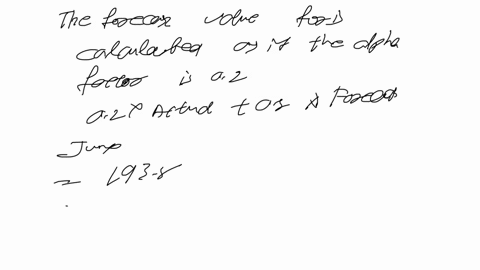 The forecast value for is
calculated as if the alpha
factor is 0.2
0.2 × Actual + 0.8 × Forecast
June
= 193.8